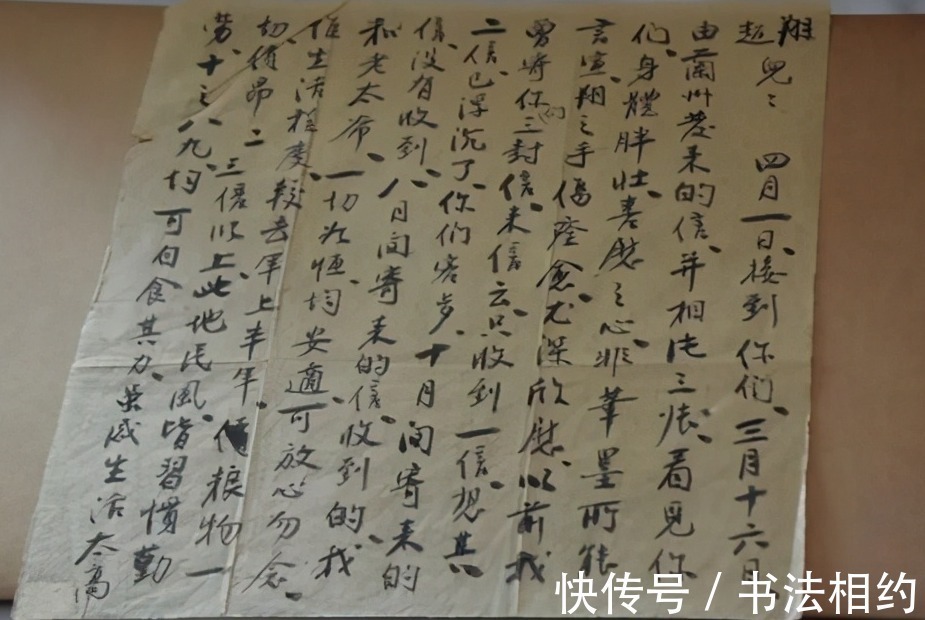 翔
超兒：四月一日、接到你们、三月十六日、
由蘭州發来的信、并相片三张、看见你
们、身體胖壮、喜慰之心、非筆墨所能
言宣、翔之手傷痊愈、尤深欣慰、以前我
曾寄你们三封信、来信云、只收到一信、想其
二信已浮沉了、你们客岁、十月间寄来的
信、没有收到、八月间寄来的信、收到的、我
和老太爷、一切如恒、均安適、可放心勿念、
惟生活程度、較去年上半年、價粮物一
切须昂二三倍以上、此地民风、皆習慣勤
劳、十之八九、均可自食其力、
生活太高
快传号 / 书法相约